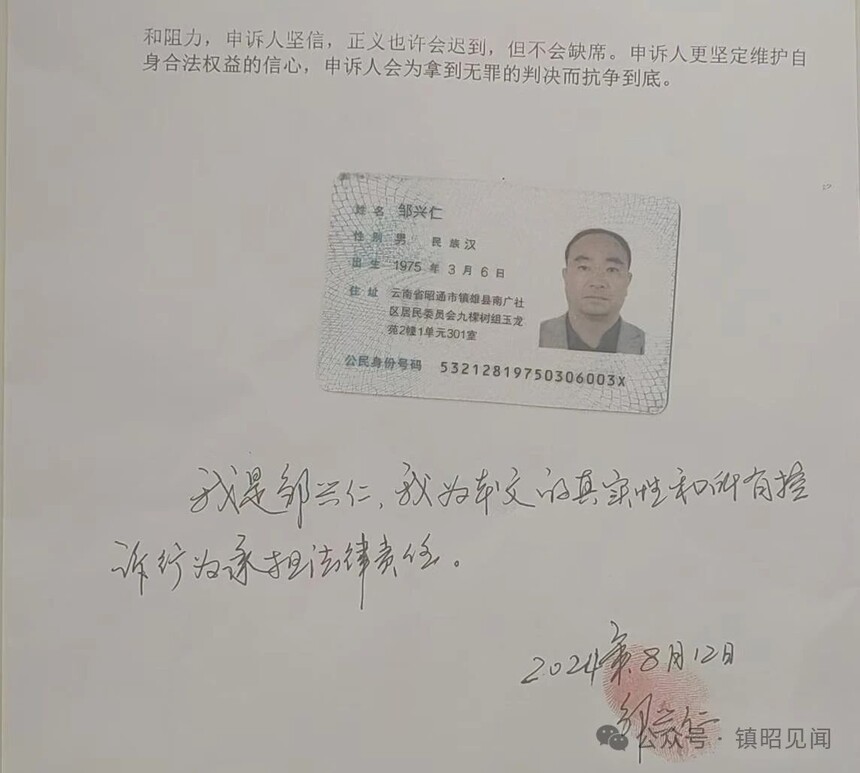 和阻力，申诉人坚信，正义也许会迟到，但不会缺席。申诉人更坚定维护自
身合法权益的信心，申诉人会为拿到无罪的判决而抗争到底。
姓名 邹兴仁
性别 男 民族 汉
出生 1975 年 3 月 6 日
住址 云南省昭通市镇雄县南广社
区居民委员会九棵树组玉龙
苑2幢1单元301室
公民身份号码 53212819750306003X
我是邹兴仁，我为本文的真实性和所有控
诉行为承担法律责任。
2024年8月12日
邹兴仁
公众号·镇昭见闻